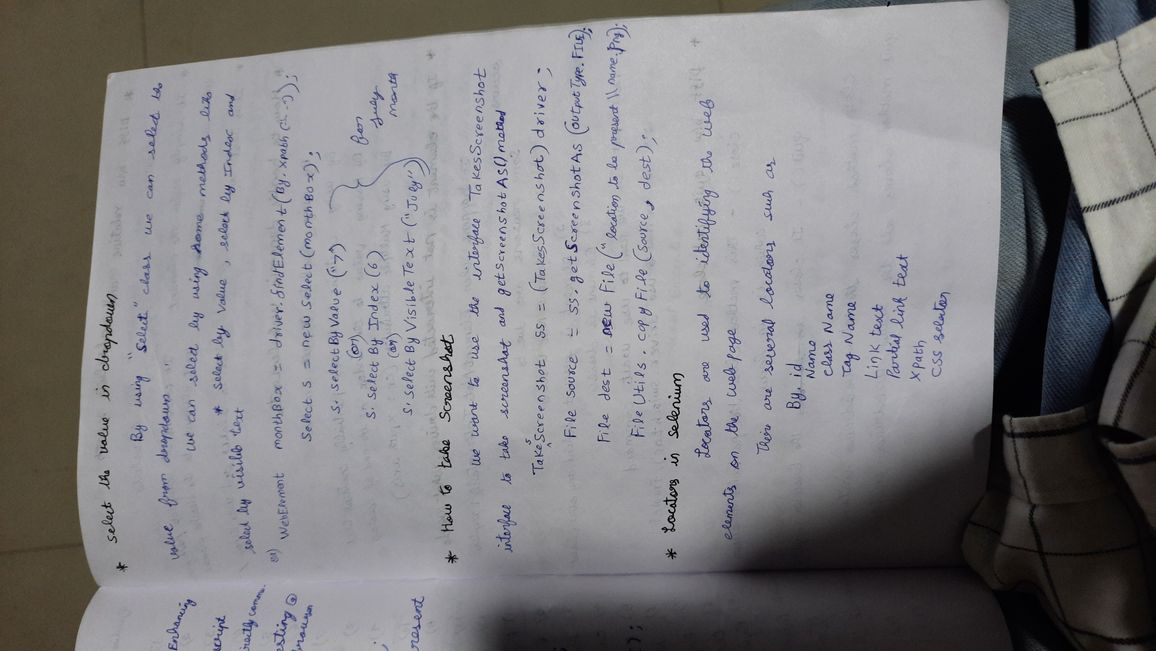 * select the value in dropdown
By using "select" class we can select the
value from dropdown.
we can select by using some methods like
* select by value, select by Index and
select by visible text
WebElement monthBox = driver.findElement(By.xpath("--"));
Select s = new select (monthBox);
s. select By Value ("7")
(or)
s. select By Index (6)
(or)
s. select By Visible Text ("July")
for
July
month
* How to take Screenshot
we want to use the interface TakesScreenshot
interface to take screenshot and getscreenshotAs() method
TakesScreenshot ss = (TakesScreenshot) driver;
File source = ss.getScreenshotAs (OutputType.FILE);
File dest = new File ("location to be present \\ name.png");
File Utils. copy File (source, dest);
* Locators in Selenium
Locators are used to identifying the web
elements on the webpage
There are several locators such as
By. id
Name
Class Name
Tag Name
Link text
Partial link text
Xpath
CSS selector
Enhancing
script
directly
present